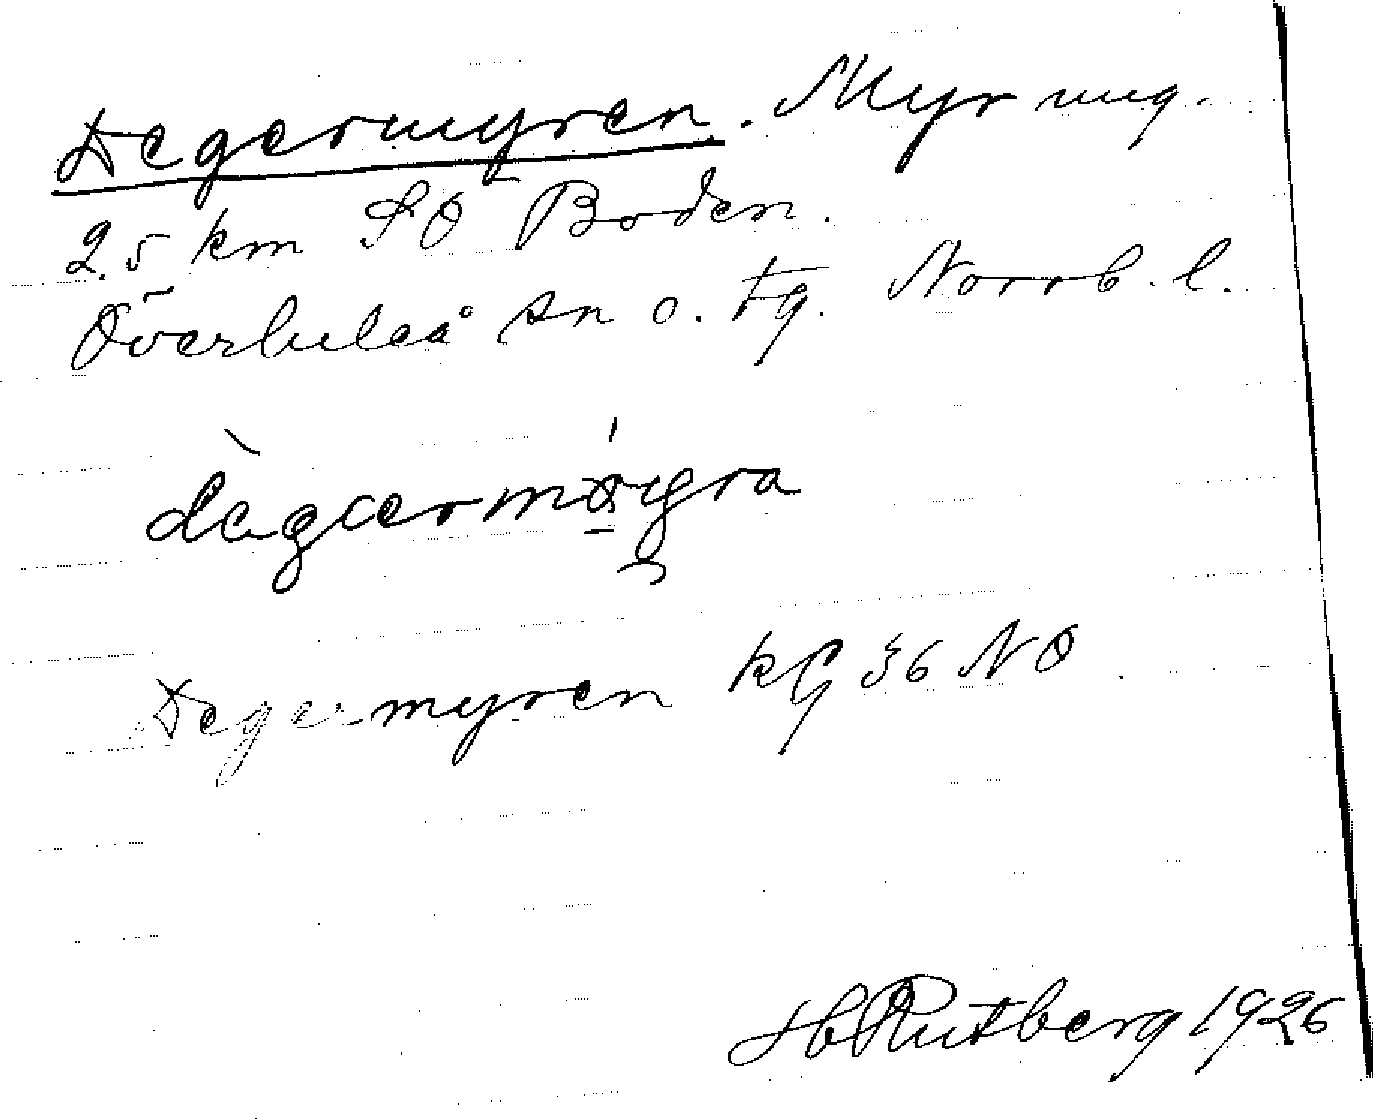 Degermyren. Myr ung.
2,5 km SÖ Boden.
Överluleå sn o. tg. Norrb. l.
Degermyren kG 36 NO
H Rutberg 1926